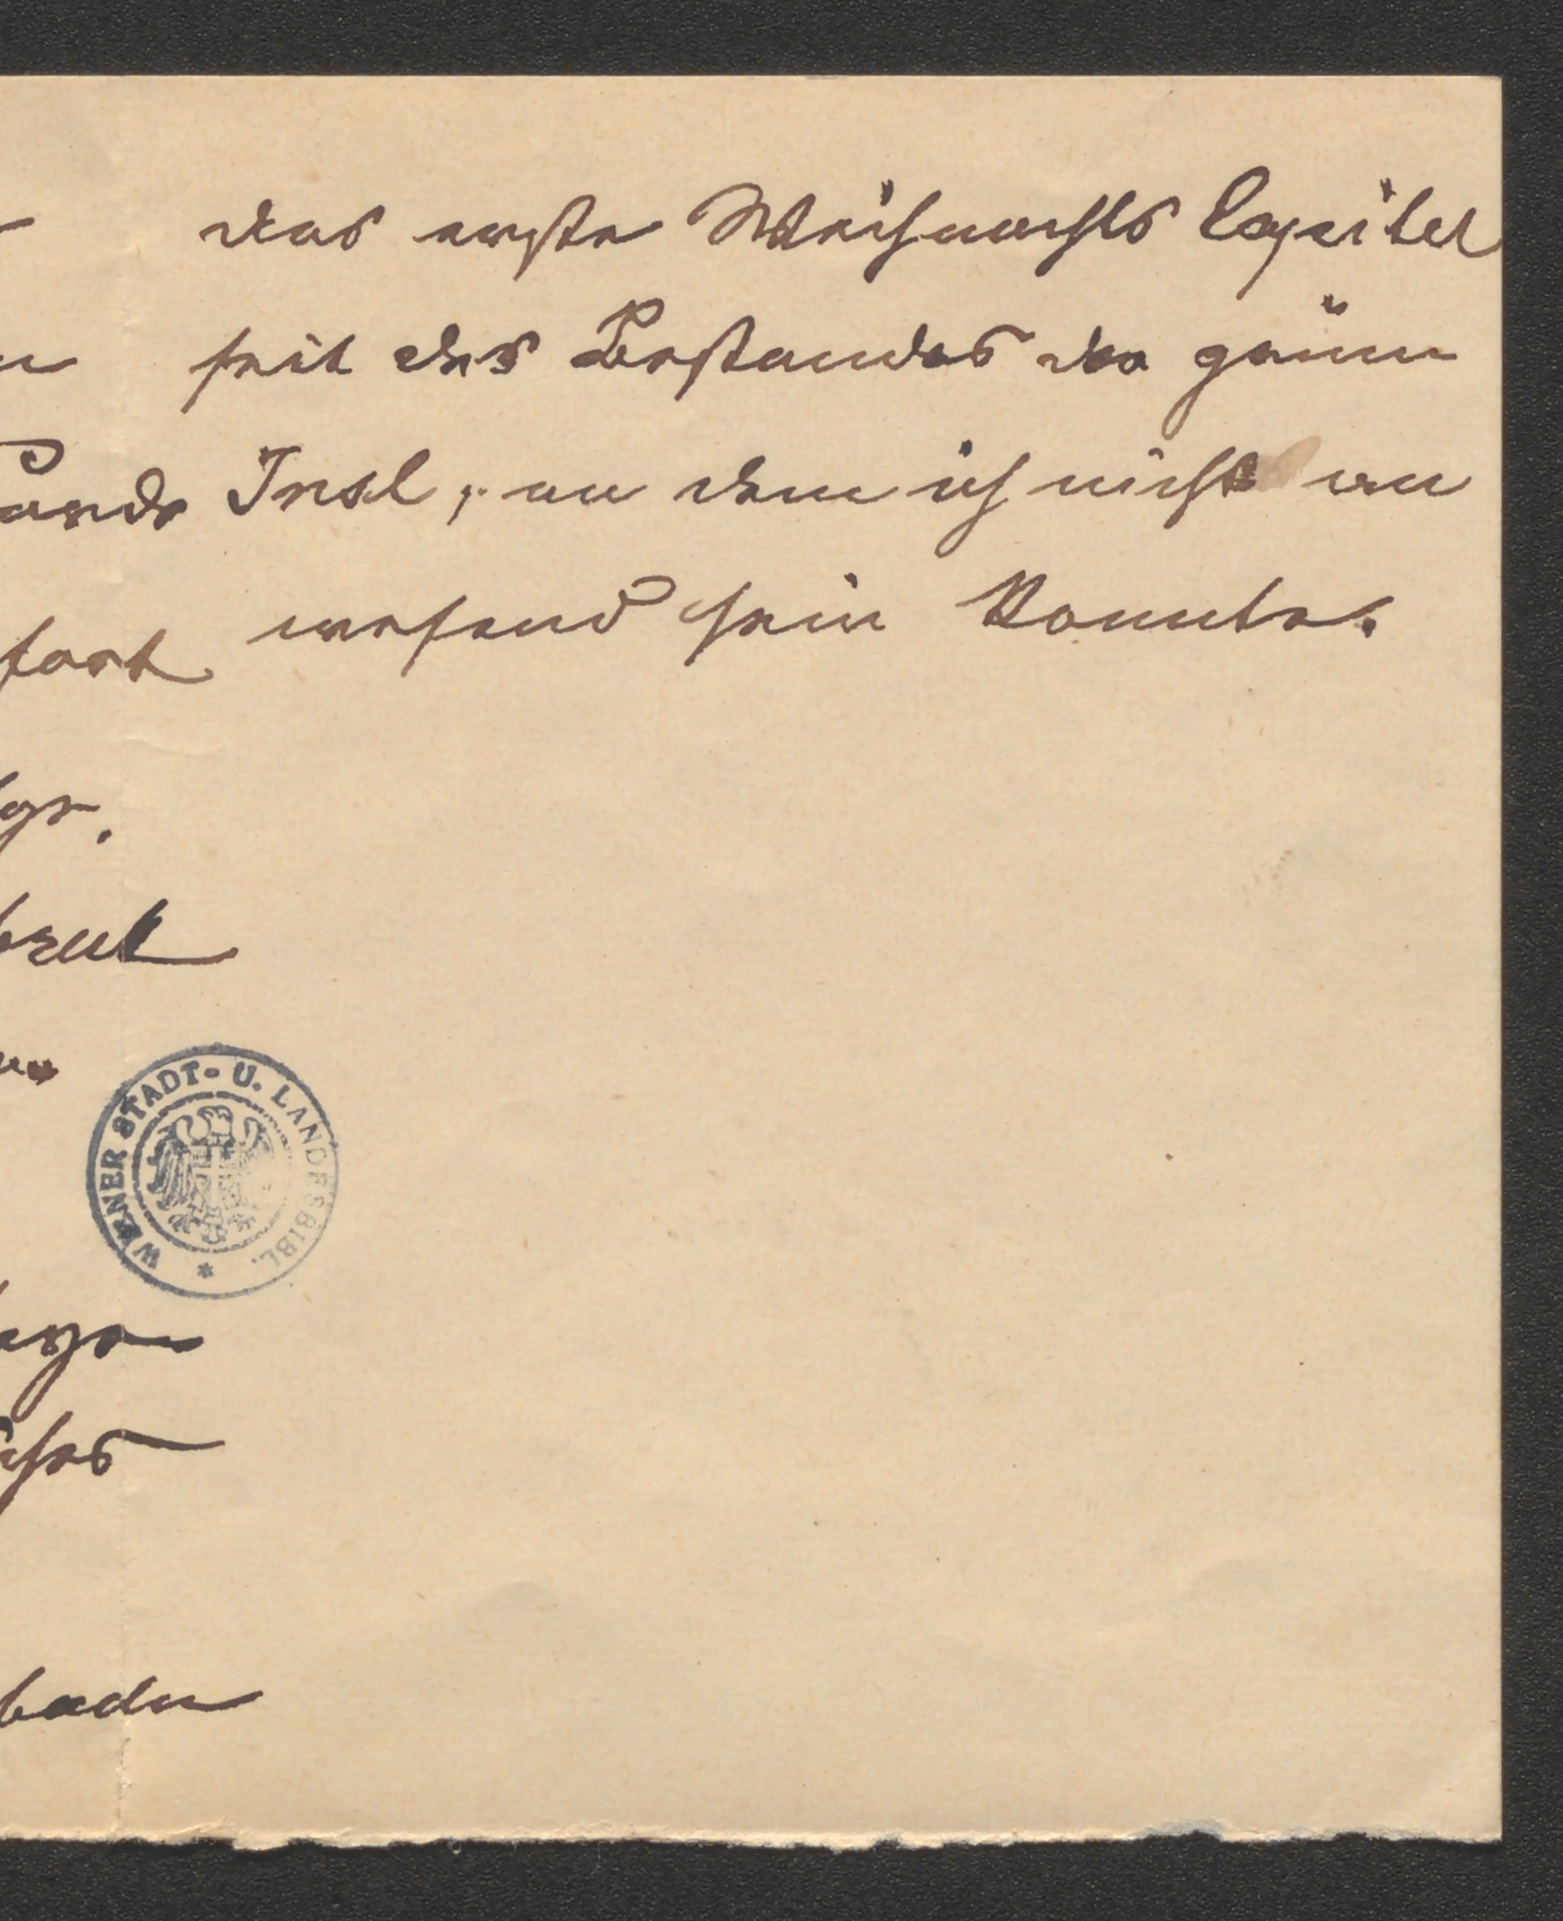 das erste Weihnachts Capitel
seit des Bestandes der grünen
Insel, an dem ich nicht an
wesend sein konnte.
fort
bruk
WIENER STADT- U. LANDESBIBL. *
baden